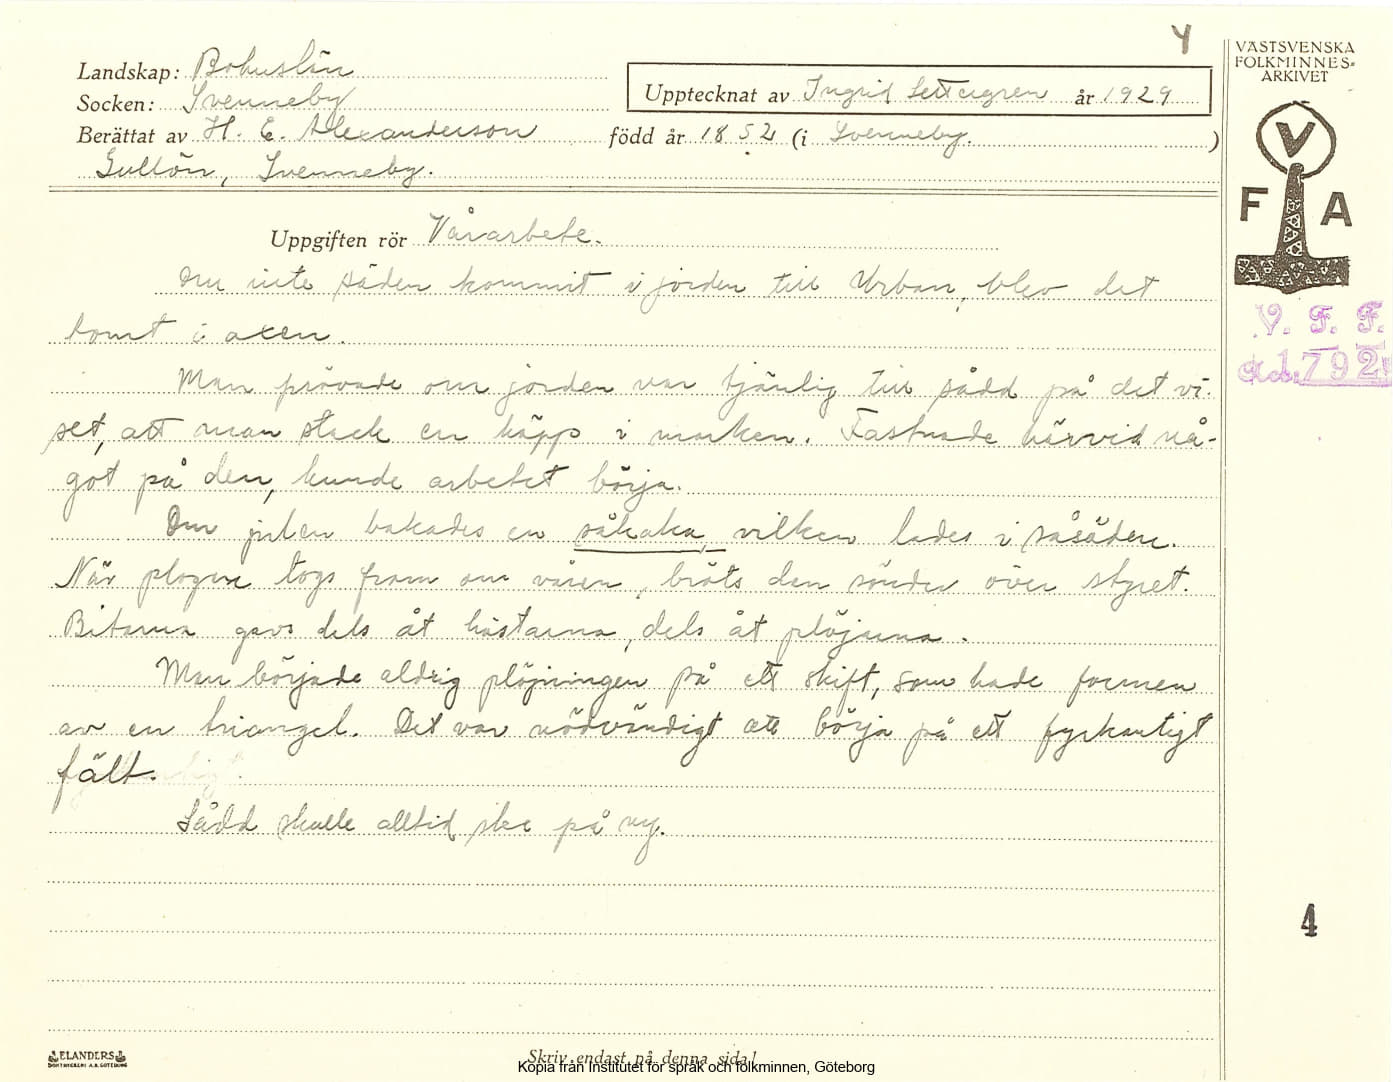 4
Landskap: Bohuslän
Socken: Svenneby
Upptecknat av Ingrid Settergren år 1929
Berättat av H. E. Alexanderson född år 1852 (i Svenneby. )
Gullön, Svenneby.
Uppgiften rör Vårarbete.
Om inte säden kommit i jorden till Urban, blev det
tomt i axen.
Man prövade om jorden var tjänlig till sådd på det vi-
set, att man stack en käpp i marken. Fastnade härvid nå-
got på den, kunde arbetet börja.
Om julen bakades en såkaka, vilken lades i såsäden.
När plogen togs fram om våren, bröts den sönder över styret.
Bitarna gavs dels åt hästarna, dels åt plöjarna.
Man började aldrig plöjningen på ett skift, som hade formen
av en triangel. Det var nödvändigt att börja på ett fyrkantigt
fält.
Sådd skulle alltid ske på ny.
VÄSTSVENSKA
FOLKMINNES-
ARKIVET
V
F A
V. F. F.
Acc. 1792
4
ELANDERS
BOKTRYCKERI A.B. GÖTEBORG
Skriv endast på denna sida!
Kopia från Institutet för språk och folkminnen, Göteborg